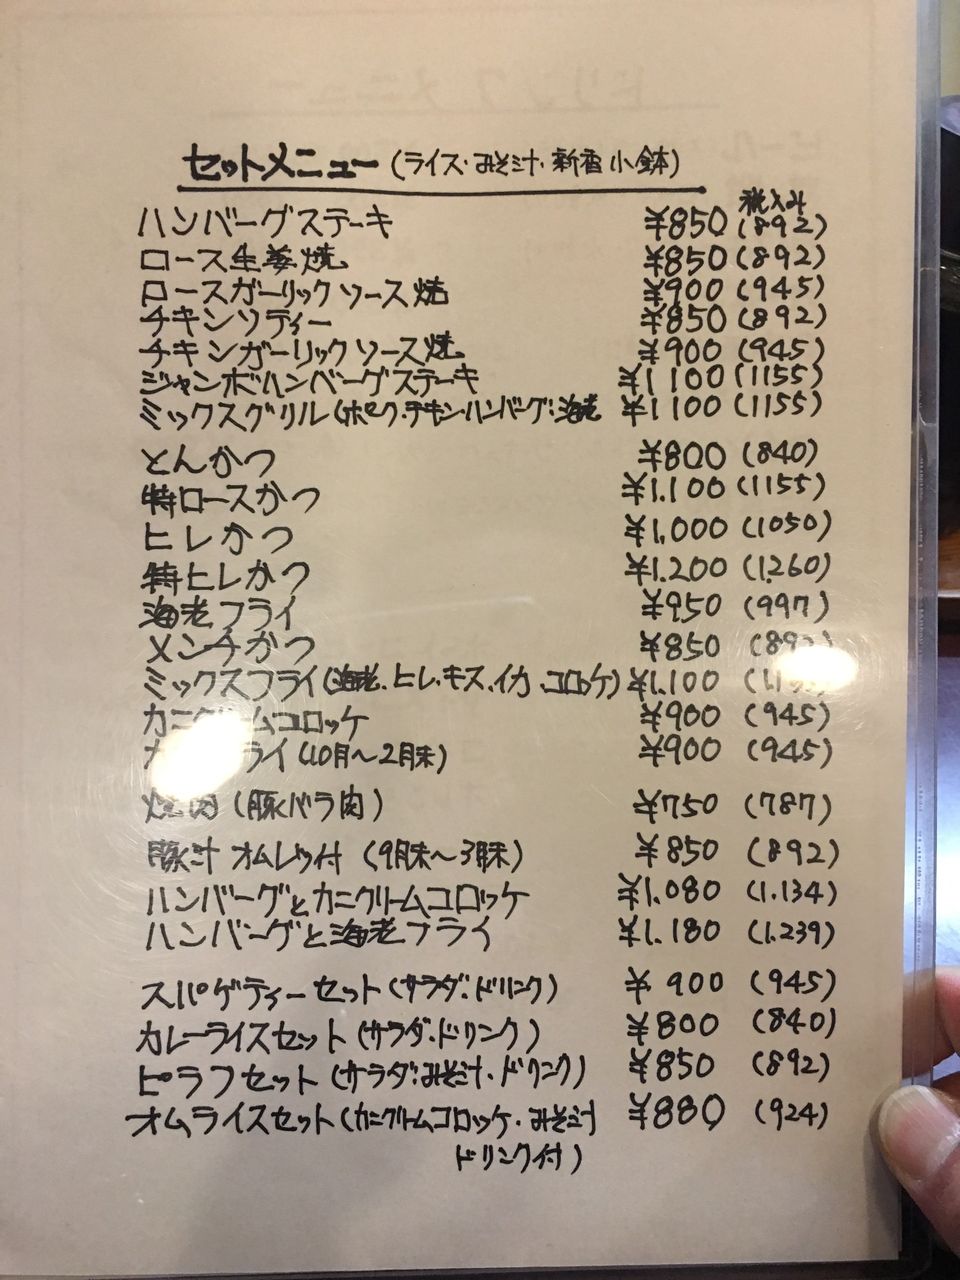 セットメニュー (ライス・みそ汁・新香 小鉢)
税込み
ハンバーグステーキ ¥850 (892)
ロース生姜焼 ¥850 (892)
ロースガーリックソース焼 ¥900 (945)
チキンソティー ¥850 (892)
チキンガーリックソース焼 ¥900 (945)
ジャンボハンバーグステーキ ¥1100 (1155)
ミックスグリル(ポーク・チキン・ハンバーグ・海老 ¥1100 (1155)
とんかつ ¥800 (840)
特ロースかつ ¥1.100 (1155)
ヒレかつ ¥1,000 (1050)
特ヒレかつ ¥1.200 (1.260)
海老フライ ¥950 (997)
メンチかつ ¥850 (892)
ミックスフライ(海老.ヒレ.キス.イカ.コロッケ) ¥1.100
カニクリームコロッケ ¥900 (945)
フライ (10月〜2月末) ¥900 (945)
焼肉 (豚バラ肉) ¥750 (787)
豚汁 オムレツ付 (9月末〜3月末) ¥850 (892)
ハンバーグとカニクリームコロッケ ¥1.080 (1.134)
ハンバーグと海老フライ ¥1.180 (1.239)
スパゲティーセット (サラダ・ドリンク) ¥900 (945)
カレーライスセット (サラダ・ドリンク) ¥800 (840)
ピラフセット (サラダ・みそ汁・ドリンク) ¥850 (892)
オムライスセット (カニクリームコロッケ・みそ汁 ¥880 (924)
ドリンク付)